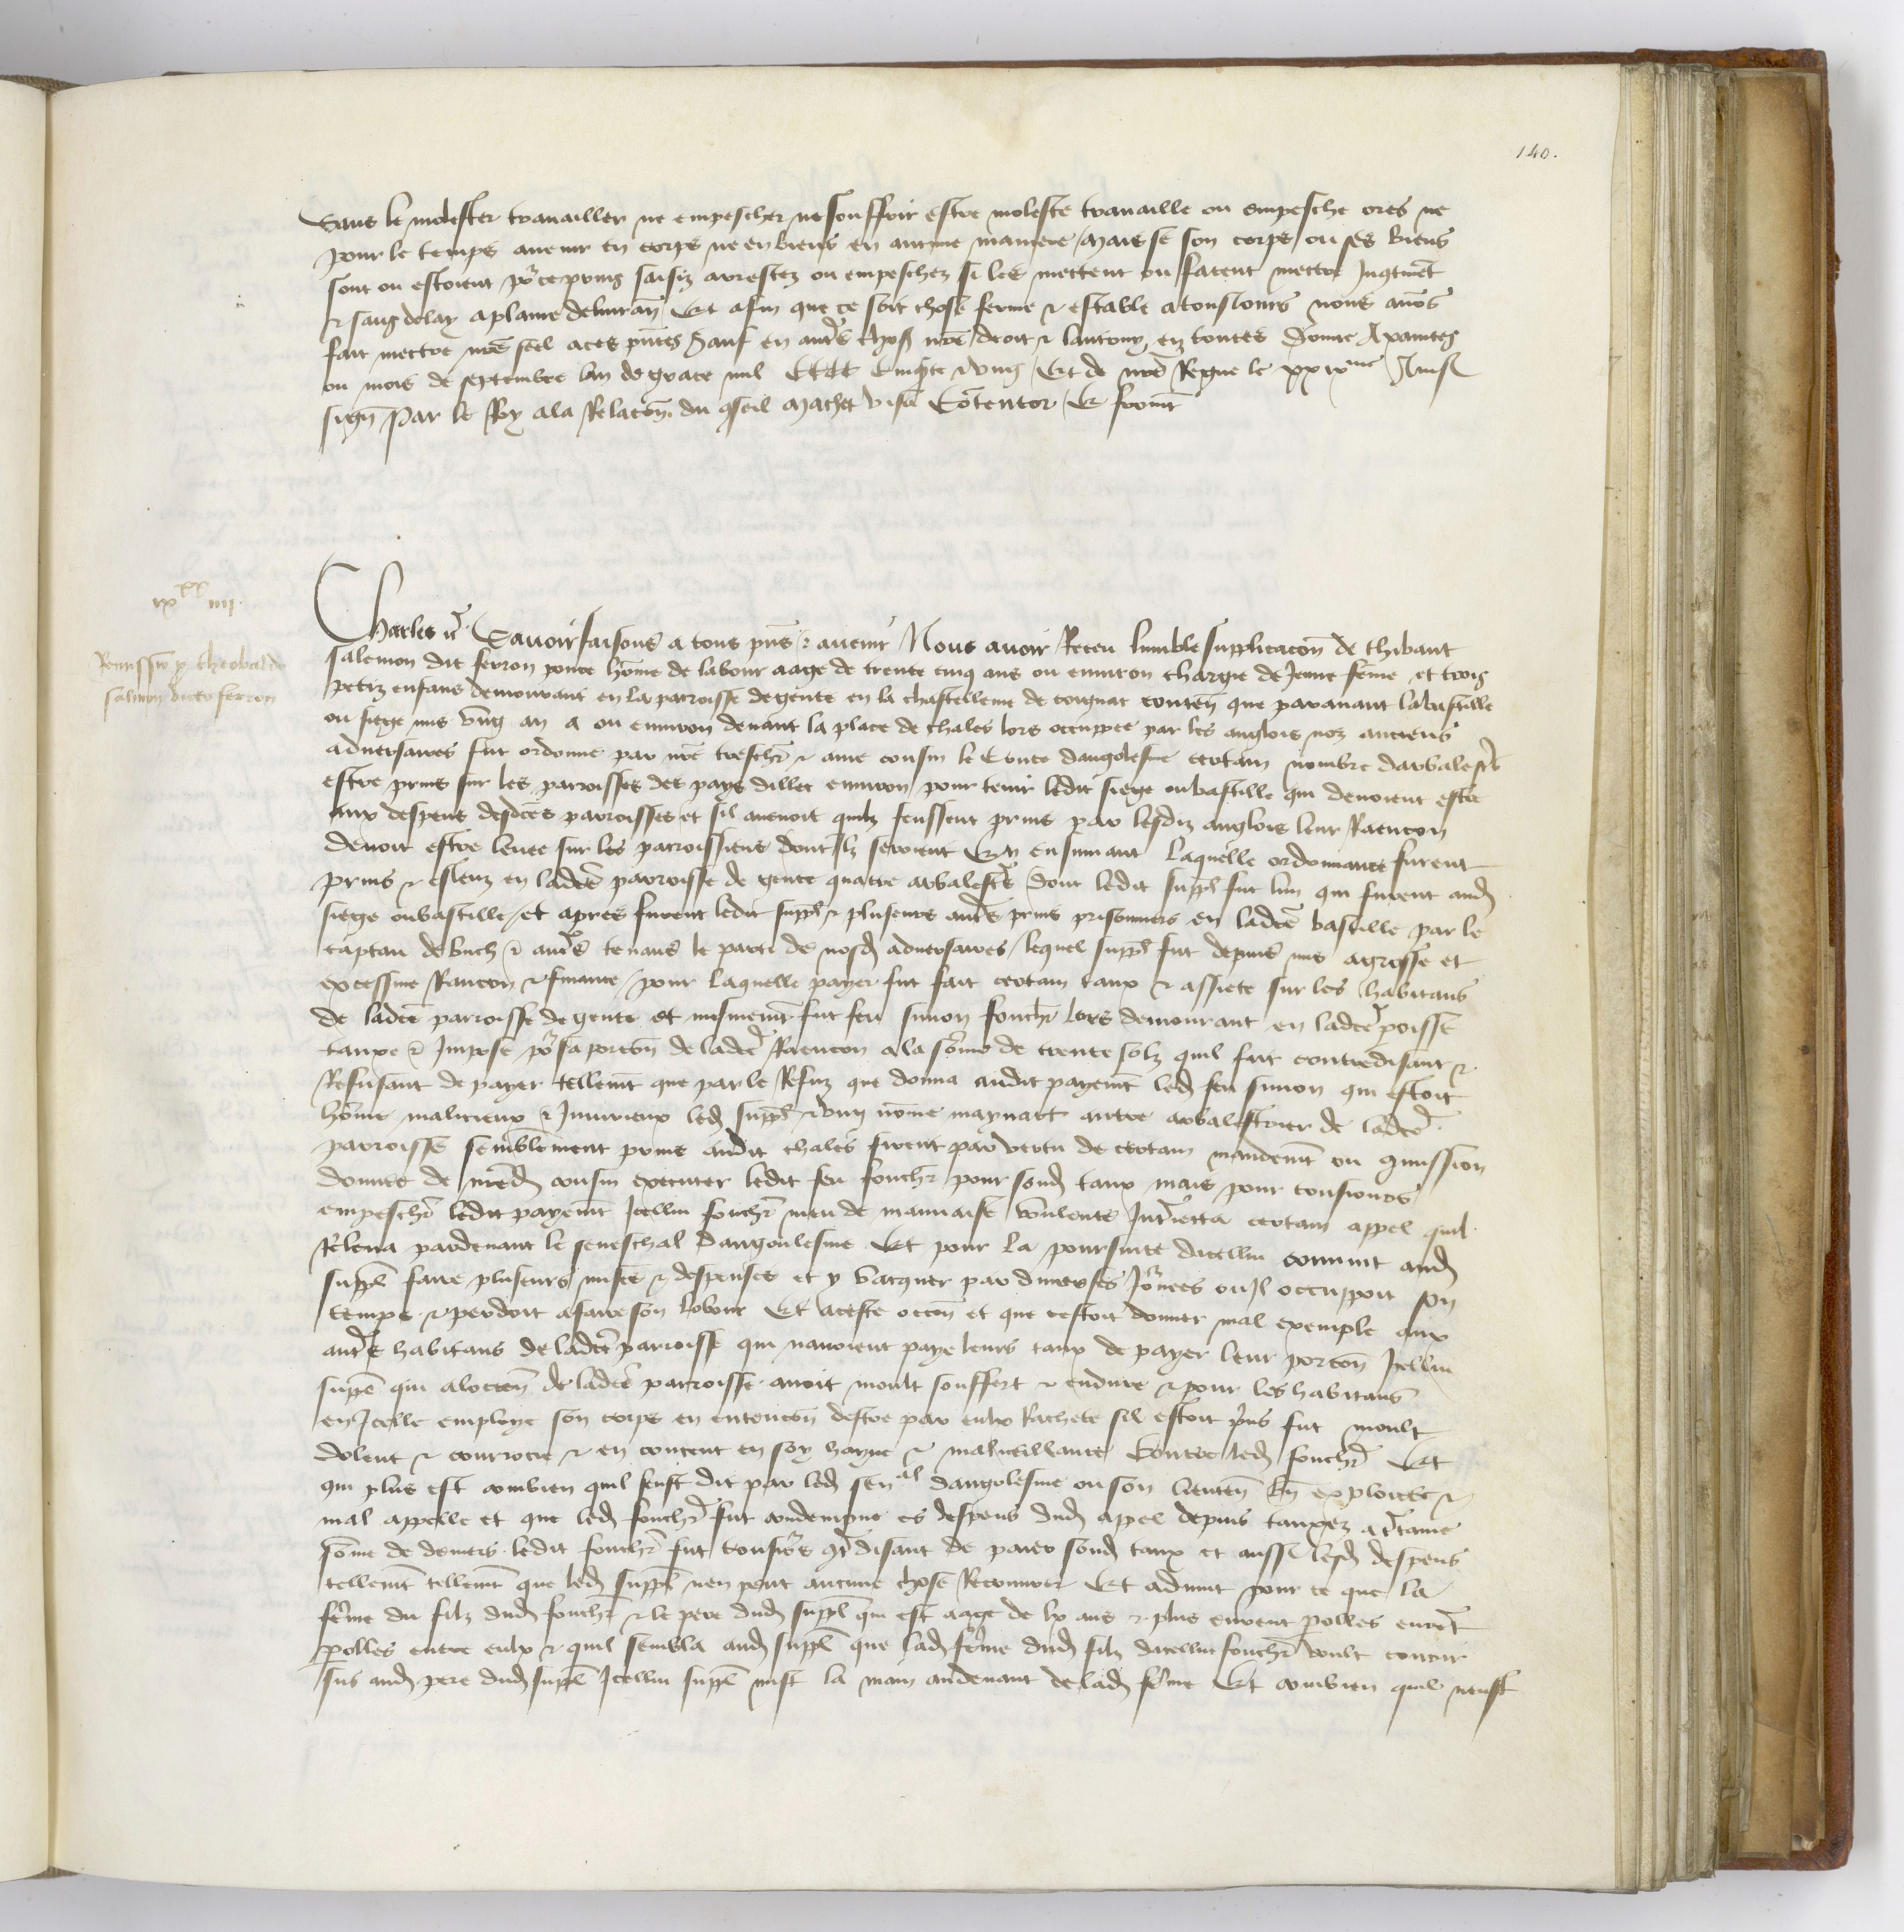 140.
Sans le molester travailler ne empescher ne souffrir estre moleste travaille ou empesche ores ne
pour le temps avenir en corps ne en biens en aucune maniere / Mais se son corps ou ses biens
sont ou estoient pr ce prins saisiz arrestez ou empeschez si les mettent ou facent mectre Incontinet
& sans delay a plaine delivran Et afin que ce soit chose ferme & estable a tousiours nous avons
fait mectre nre seel a ces pntes Sauf en autres choses nre droit & lautruy en toutes Donne
ou mois de septembre lan de grace mil CCCC Cinqte & ung / Et de nre Regne le xxixme Ainsi
signe Par le Roy a la Relacon du conseil Machet visa Contentor E froment
ixxx iiii.
Remissio p theobaldo
salmon dicto ferron
Charles &c Savoir faisons a tous pns & avenir Nous avoir Receu lumble supplicacon de thibaut
salemon dit ferron povre home de labour aage de trente cinq ans ou environ charge de Jeune feme et trois
petiz enfans demourant en la parroisse de gente en la chastellenie de congnac conten que paravant la bastille
ou siege mis ung an a ou environ devant la place de chales lors occuppee par les anglois noz anciens
adversaires fut ordonne par nre treschr & ame cousin le Conte dangolesme certain nombre darbalestrs
estre prins sur les parroisses des pays dillec environ pour tenir ledit siege ou bastille qui devoient estre
aux despens desdces parroisses et sil avenoit quilz feussent prins par lesdiz anglois leur Raencon
devoit estre levee sur les parroissiens dont Ilz seroient Et en ensuivant laquelle ordonnance furent
prins & esleuz en ladce parroisse de gente quatre arbalestrs dont ledit suppl fut lun qui furent aud
siege ou bastille / et apres furent ledit suppl & pluseurs autrs prins prisonniers en ladce bastille par le
captau de buch & autrs tenans le parti de nosd adversaires / lequel suppl fut depuis mis a grosse et
excessive Rancon & finance / pour laquelle payer fut fait certain taux & assiete sur les habitans
de ladce parroisse de gente et mesmemt fut feu simon foucher lors demourant en ladce proisse
tauxe & Impose pr sa porcon de ladce Raencon a la some de trente solz quil fut contredisant &
Refusant de payer tellemt que par le Reffuz que donna audit payemt led feu simon qui estoit
home malicieux & Iniurieux led suppl & ung nome maynart autre arbalestrier de ladce
parroisse semblement prins audit chales firent par vertu de certain mandemt ou commission
donnee de nred cousin executer ledit feu foucher pour sond taux mais pour tousiours
empescher ledit payemt Icellui foucher meu de mauvaise voulente Interiecta certain appel quil
Releva pardevant le seneschal dangoulesme Et pour la poursuite dicellui convint aud
suppl faire pluseurs mises & despenses et y vacquer par diverses Jornees ou Il occuppoit son
temps & perdoit a faire son labour Et a ceste occon et que cestoit donner mal exemple aux
autrs habitans de ladce parroisse qui navoient paye leurs taux de payer leur porcon Icellui
suppl qui a loccon de ladce parroisse avoit moult souffert & endure & pour les habitans
en Icelle employe son corps en entencon destre par eulx Rachete sil estoit prins fut moult
dolent & courrocie & en conceut en soy hayne & malveillance Contre led foucher Et
qui plus est combien quil feust dit par led senal dangolesme ou son lieuten bn exploicte &
mal appelle et que led foucher fut condempne es despens dud appel depuis tauxez a crtaine
some de deniers ledit foucher fut tousiors contredisant de paier sond taux et aussi lesd despens
tellemt tellemt que led suppl nen peut aucune chose Recouvrer Et advint pour ce que la
feme du filz dud foucher & le pere dud suppl qui est aage de lx ans & plus eurent parolles eurent
parolles entre eulx & quil sembla aud suppl que lad feme dud filz dicellui foucher voult courir
sus aud pere dud suppl Icellui suppl mist la main audevant de lad feme Et combien quil neust